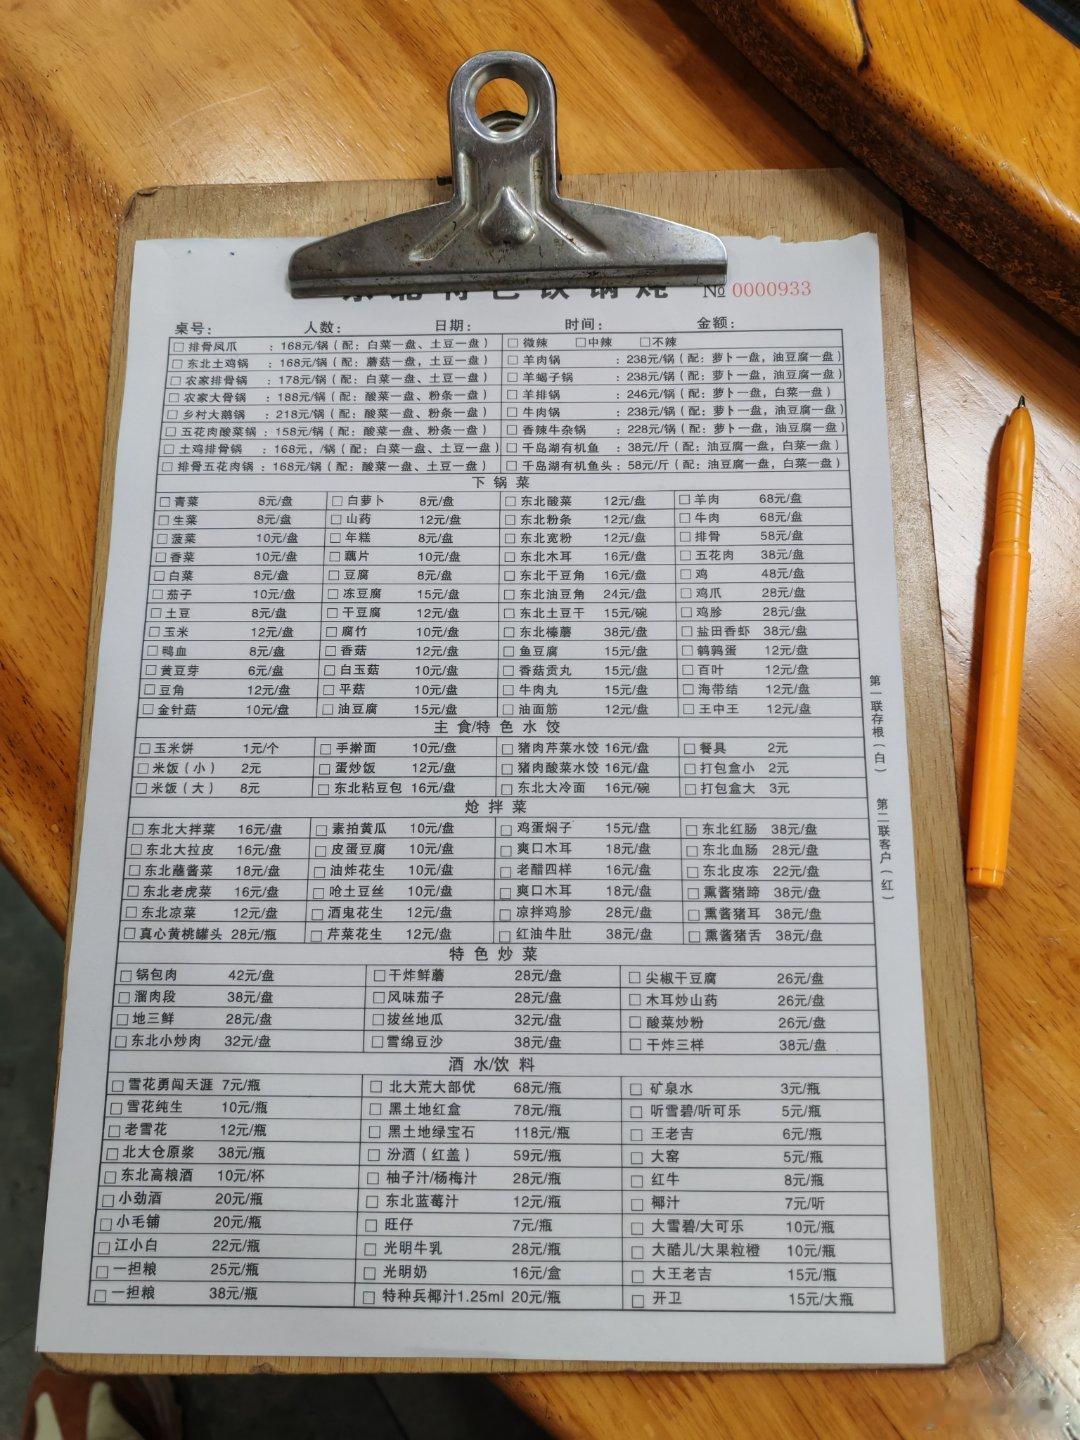 东北特色铁锅炖 № 0000933
桌号： 人数： 日期： 时间： 金额：
□排骨凤爪 ：168元/锅（配：白菜一盘、土豆一盘） □微辣 □中辣 □不辣
□东北土鸡锅 ：168元/锅（配：蘑菇一盘，土豆一盘） □羊肉锅 ：238元/锅（配：萝卜一盘，油豆腐一盘）
□农家排骨锅 ：178元/锅（配：白菜一盘、土豆一盘） □羊蝎子锅 ：238元/锅（配：萝卜一盘，油豆腐一盘）
□农家大骨锅 ：188元/锅（配：酸菜一盘、粉条一盘） □羊排锅 ：246元/锅（配：萝卜一盘，白菜一盘）
□乡村大鹅锅 ：218元/锅（配：酸菜一盘、粉条一盘） □牛肉锅 ：238元/锅（配：萝卜一盘，油豆腐一盘）
□五花肉酸菜锅：158元/锅（配：酸菜一盘、粉条一盘） □香辣牛杂锅 ：228元/锅（配：萝卜一盘，油豆腐一盘）
□土鸡排骨锅 ：168元，/锅（配：白菜一盘、土豆一盘） □千岛湖有机鱼 ：38元/斤（配：油豆腐一盘，白菜一盘）
□排骨五花肉锅：168元/锅（配：酸菜一盘、土豆一盘） □千岛湖有机鱼头：58元/斤（配：油豆腐一盘，白菜一盘）
下锅菜
□青菜 8元/盘 □白萝卜 8元/盘 □东北酸菜 12元/盘 □羊肉 68元/盘
□生菜 8元/盘 □山药 12元/盘 □东北粉条 12元/盘 □牛肉 68元/盘
□菠菜 10元/盘 □年糕 8元/盘 □东北宽粉 12元/盘 □排骨 58元/盘
□香菜 10元/盘 □藕片 10元/盘 □东北木耳 16元/盘 □五花肉 38元/盘
□白菜 8元/盘 □豆腐 8元/盘 □东北干豆角 16元/盘 □鸡 48元/盘
□茄子 10元/盘 □冻豆腐 15元/盘 □东北油豆角 24元/盘 □鸡爪 28元/盘
□土豆 8元/盘 □干豆腐 12元/盘 □东北土豆干 15元/碗 □鸡胗 28元/盘
□玉米 12元/盘 □腐竹 10元/盘 □东北榛蘑 38元/盘 □盐田香虾 38元/盘
□鸭血 8元/盘 □香菇 12元/盘 □鱼豆腐 15元/盘 □鹌鹑蛋 12元/盘
□黄豆芽 6元/盘 □白玉菇 10元/盘 □香菇贡丸 15元/盘 □百叶 12元/盘
□豆角 12元/盘 □平菇 10元/盘 □牛肉丸 15元/盘 □海带结 12元/盘
□金针菇 10元/盘 □油豆腐 15元/盘 □油面筋 12元/盘 □王中王 12元/盘
主食/特色水饺
□玉米饼 1元/个 □手擀面 10元/盘 □猪肉芹菜水饺 16元/盘 □餐具 2元
□米饭（小） 2元 □蛋炒饭 12元/盘 □猪肉酸菜水饺 16元/盘 □打包盒小 2元
□米饭（大） 8元 □东北粘豆包 16元/盘 □东北大冷面 16元/碗 □打包盒大 3元
炝拌菜
□东北大拌菜 16元/盘 □素拍黄瓜 10元/盘 □鸡蛋焖子 15元/盘 □东北红肠 38元/盘
□东北大拉皮 16元/盘 □皮蛋豆腐 10元/盘 □爽口木耳 18元/盘 □东北血肠 28元/盘
□东北蘸酱菜 18元/盘 □油炸花生 10元/盘 □老醋四样 16元/盘 □东北皮冻 22元/盘
□东北老虎菜 16元/盘 □呛土豆丝 10元/盘 □爽口木耳 18元/盘 □熏酱猪蹄 38元/盘
□东北凉菜 12元/盘 □酒鬼花生 12元/盘 □凉拌鸡胗 28元/盘 □熏酱猪耳 38元/盘
□真心黄桃罐头 28元/瓶 □芹菜花生 12元/盘 □红油牛肚 38元/盘 □熏酱猪舌 38元/盘
特色炒菜
□锅包肉 42元/盘 □干炸鲜蘑 28元/盘 □尖椒干豆腐 26元/盘
□溜肉段 38元/盘 □风味茄子 28元/盘 □木耳炒山药 26元/盘
□地三鲜 28元/盘 □拔丝地瓜 32元/盘 □酸菜炒粉 26元/盘
□东北小炒肉 32元/盘 □雪绵豆沙 38元/盘 □干炸三样 38元/盘
酒水/饮料
□雪花勇闯天涯 7元/瓶 □北大荒大部优 68元/瓶 □矿泉水 3元/瓶
□雪花纯生 10元/瓶 □黑土地红盒 78元/瓶 □听雪碧/听可乐 5元/瓶
□老雪花 12元/瓶 □黑土地绿宝石 118元/瓶 □王老吉 6元/瓶
□北大仓原浆 38元/瓶 □汾酒（红盖） 59元/瓶 □大窑 5元/瓶
□东北高粮酒 10元/杯 □柚子汁/杨梅汁 28元/瓶 □红牛 8元/瓶
□小劲酒 20元/瓶 □东北蓝莓汁 12元/瓶 □椰汁 7元/听
□小毛铺 20元/瓶 □旺仔 7元/瓶 □大雪碧/大可乐 10元/瓶
□江小白 22元/瓶 □光明牛乳 28元/瓶 □大酷儿/大果粒橙 10元/瓶
□一担粮 25元/瓶 □光明奶 16元/盒 □大王老吉 15元/瓶
□一担粮 38元/瓶 □特种兵椰汁1.25ml 20元/瓶 □开卫 15元/大瓶
第一联存根（白）
第二联客户（红）